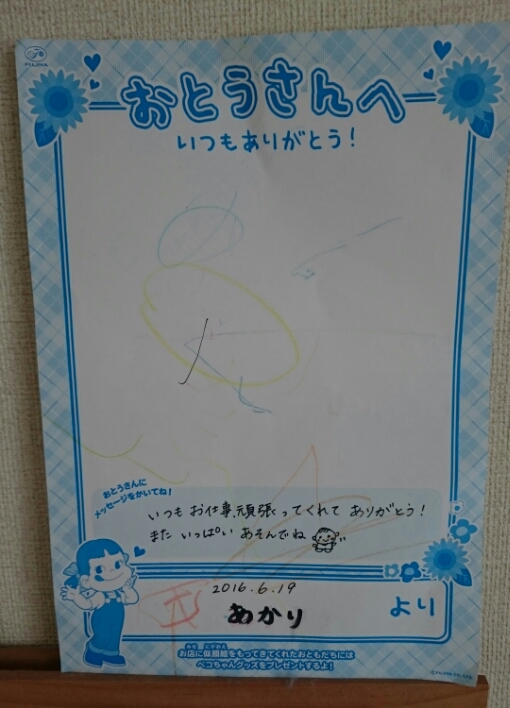 FUJIYA
おとうさんへ
いつもありがとう!
おとうさんに
メッセージをかいてね!
いつも お仕事、頑張ってくれて ありがとう!
また いっぱい あそんでね
2016.6.19
あかり
より
お店に似顔絵をもってきてくれたおともだちには
ペコちゃんグッズをプレゼントするよ!